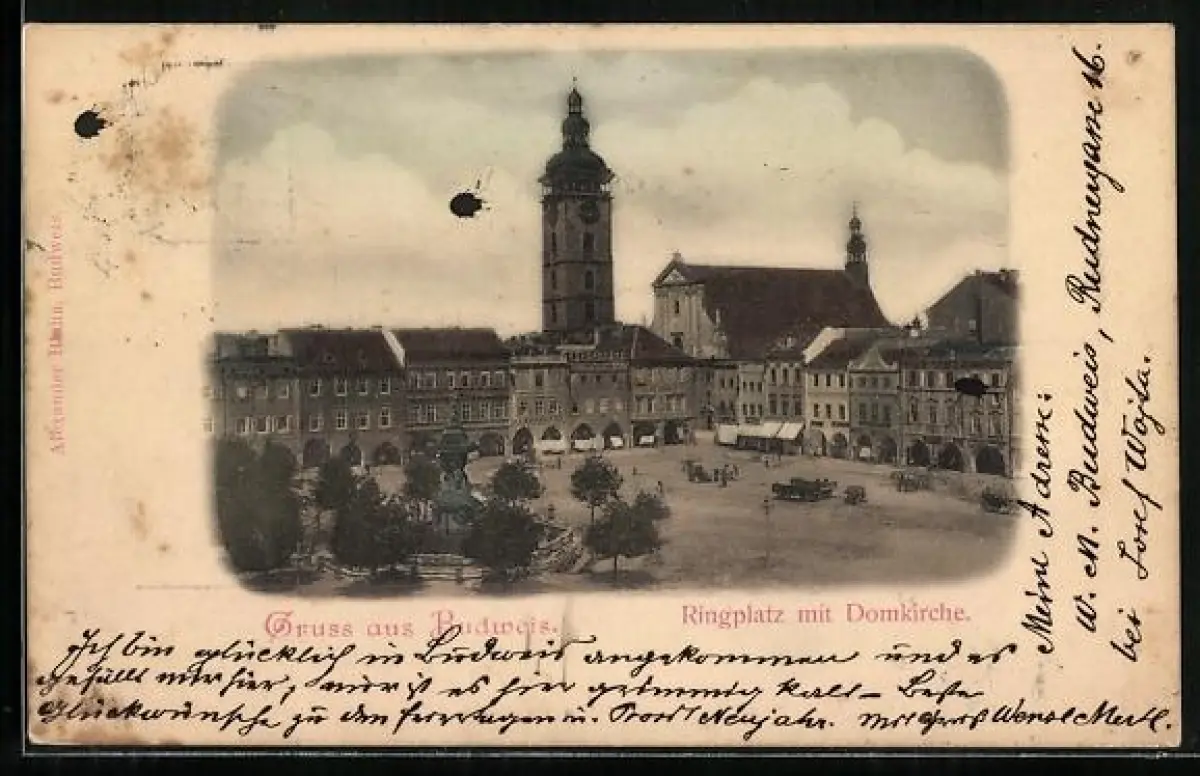 Alexander Rhein, Budweis.
Gruss aus Budweis.
Ringplatz mit Domkirche.
Ich bin glücklich in Budweis angekommen und es
gefällt mir hier, nur ist es hier grimmig kalt – Beste
Glückwünsche zu den Feiertagen u. Prosit Neujahr. Mit Gruß Wenzl Mertl.
Meine Adresse:
W. M. Budweis, Rudnergasse 16.
bei Josef Wojta.